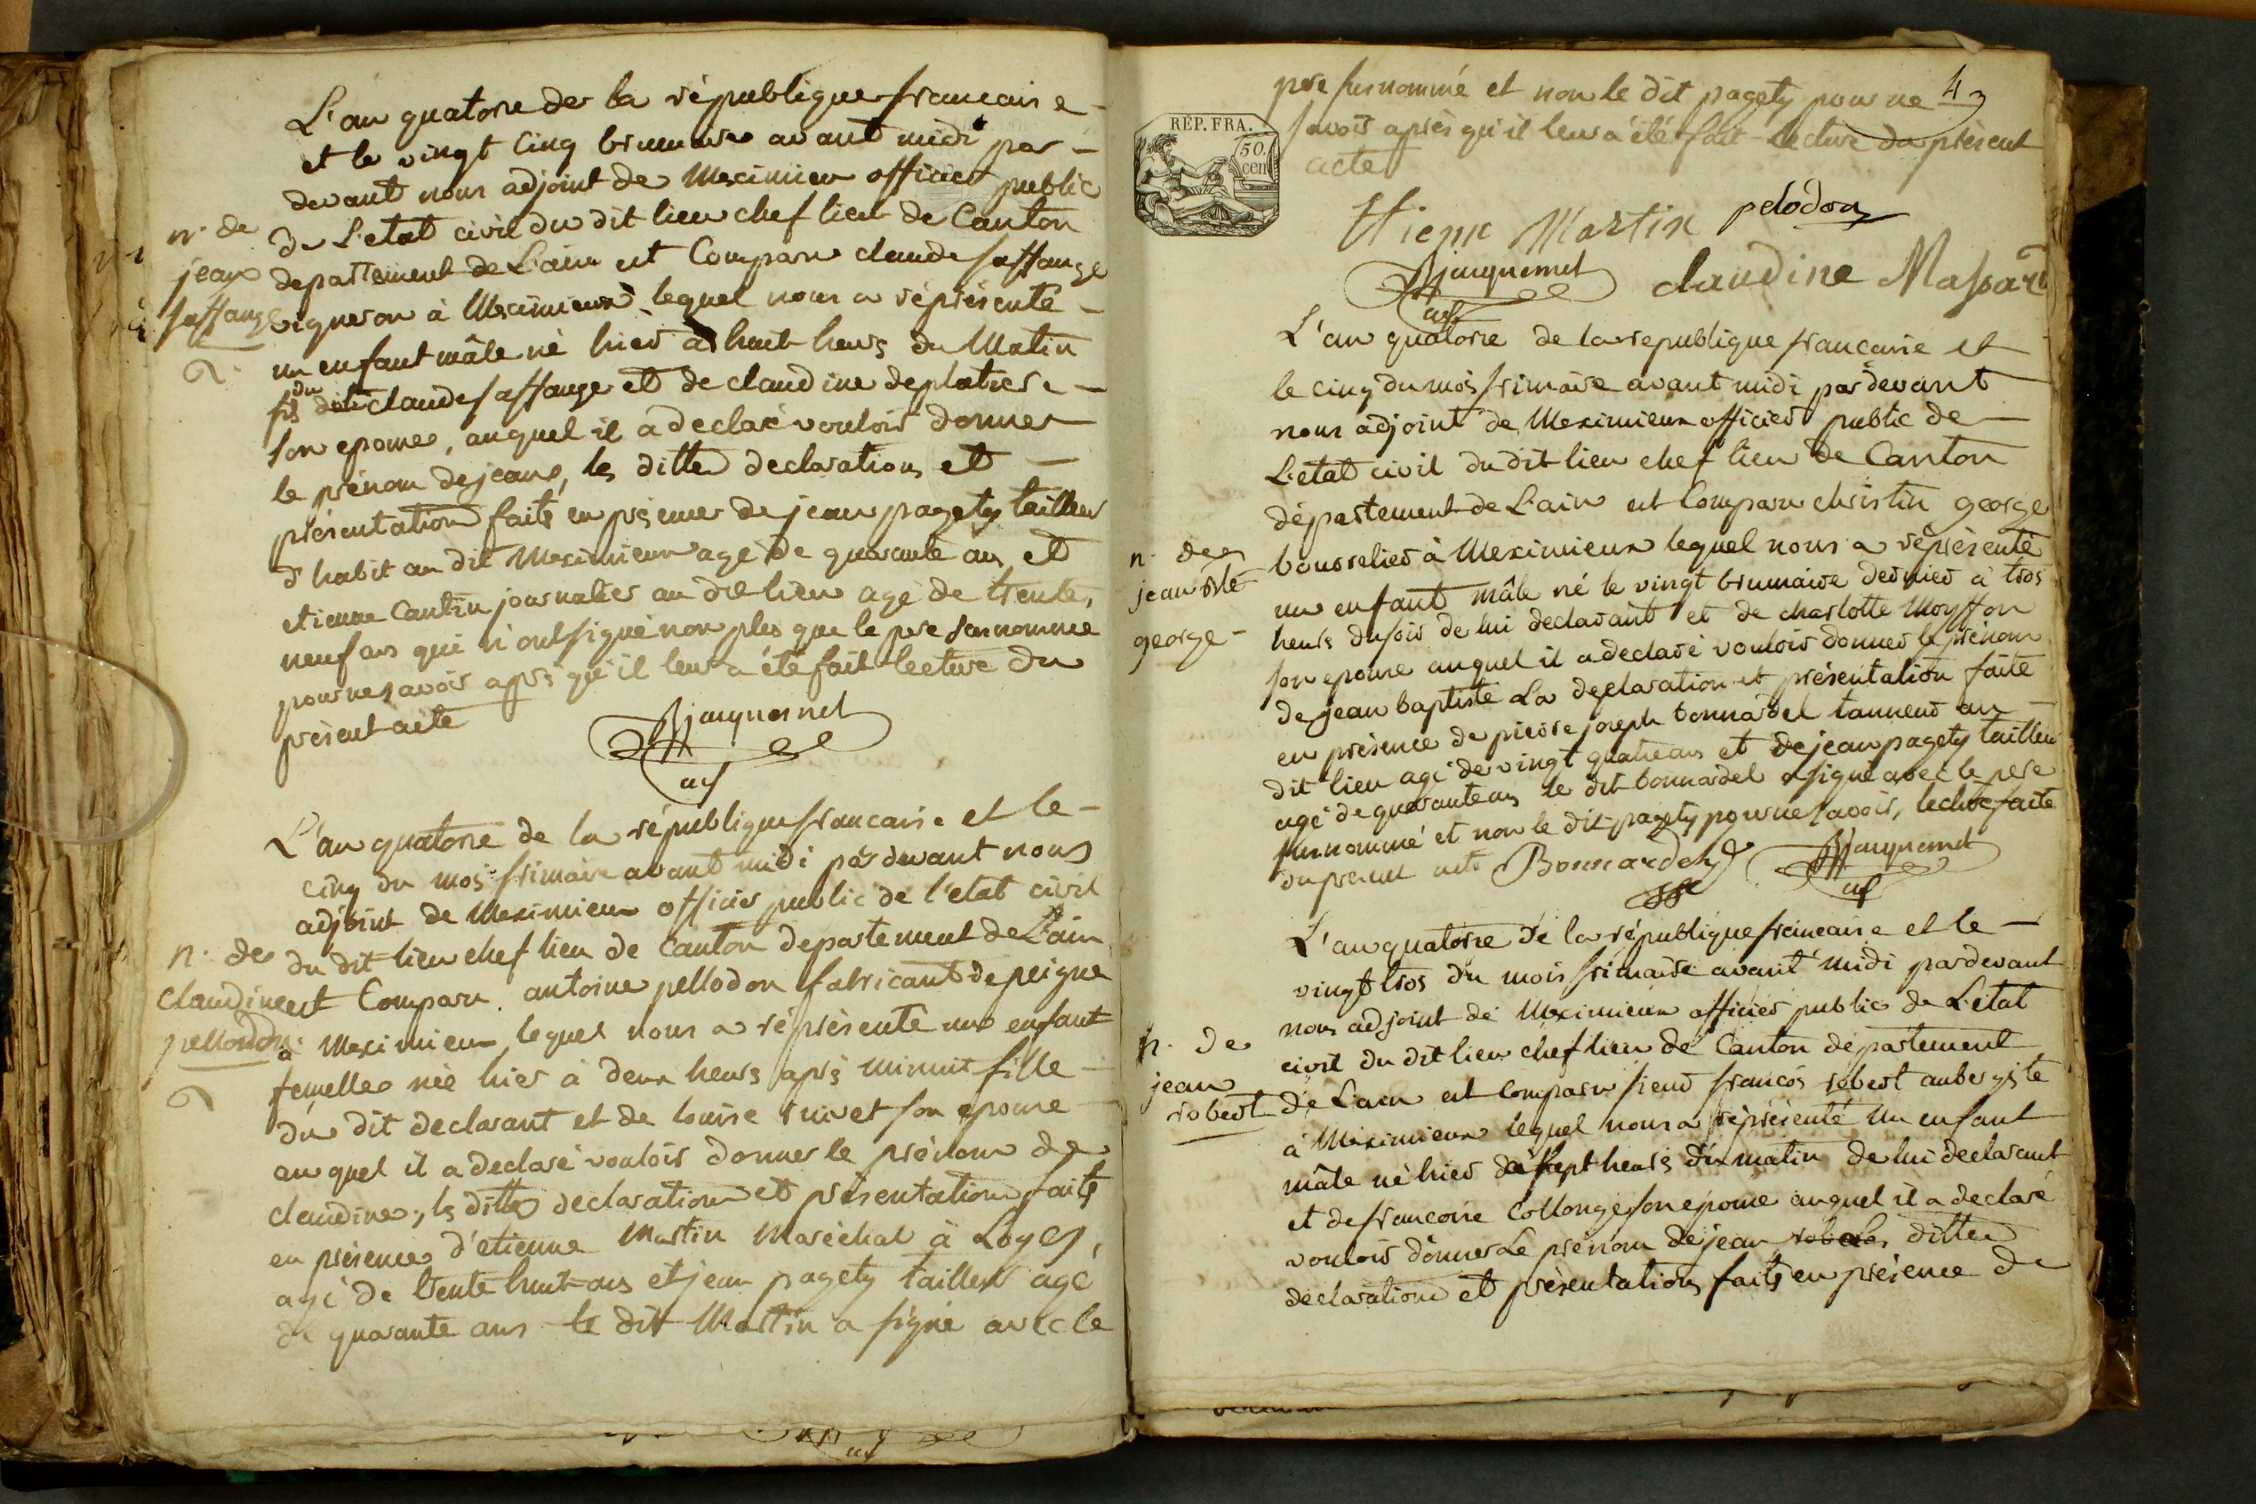 L'an quatorze de la république francaise
et le vingt cinq brumaire avant midi par
devant nous adjoint de Meximieux officier public
de L'etat civil du dit lieu chef lieu de Canton
departement de L'ain est Comparu claude saffange
vigneron à Meximieux lequel nous a réprésenté
un enfant mâle né hier à huit heurs du Matin
fils du dit claude saffange et de claudine deplatiere
son epouse, auquel il a declaré vouloir donner
le prénom de jean, les dittes declarations et
présentation faits en présence de jean pagety tailleur
d'habit au dit Meximieux agé de quarante ans et
etienne Cantin journalier au dit lieu agé de trente
neuf ans qui n'ont signé non plus que le pere surnommé
pour ne savoir après qu'il leur a été fait lecture du
présent acte
Jacquemet
adj
n. de
jean
saffange
L'an quatorze de la république francaise et le
cinq du mois frimaire avant midi par devant nous
adjoint de Meximieux officier public de l'etat civil
du dit lieu chef lieu de canton departement de L'ain
est Comparu antoine pellodon fabricant de peigne
à Meximieux lequel nous a réprésenté un enfant
femelle née hier à deux heurs après minuit fille
du dit declarant et de louise rivet son epouse
auquel il a declaré vouloir donner le prénom de
claudine, les dittes declaration et présentation faits
en présence d'etienne Martin Maréchal à Loyes,
agé de trente huit ans et jean pagety tailleur agé
de quarante ans le dit Martin a signé avec le
n. de
claudine
pellodon
4
pere surnommé et non le dit pagety pour ne
savoir après qu'il leur a été fait lecture du présent
acte
RÉP. FRA.
50.
cen
Etienne Martin pelodon
Jacquemet claudine Massard
adj
L'an quatorze de la republique francaise et
le cinq du mois frimaire avant midi par devant
nous adjoint de Meximieux officier public de
L'etat civil du dit lieu chef lieu de Canton
département de L'ain est Comparu christin george
bourrelier à Meximieux lequel nous a réprésenté
un enfant mâle né le vingt brumaire dernier à trois
heurs du soir de lui declarant et de charlotte
son epouse auquel il a declaré vouloir donner le prénom
de jean baptiste La declaration et présentation faite
en présence de pierre joseph bonnardel tanneur au
dit lieu agé de vingt quatre ans et de jean pagety tailleur
agé de quarante ans le dit bonnardel a signé avec le pere
surnommé et non le dit pagety pour ne savoir, lecture faite
du present acte Bonnardel Jacquemet
adj
n. de
jean bte
george
L'an quatorze de la république francaise et le
vingt trois du mois frimaire avant midi pardevant
nous adjoint de Meximieux officier public de L'etat
civil du dit lieu chef lieu de Canton département
de L'ain est comparu sieur francois robert aubergiste
à Meximieux lequel nous a réprésenté un enfant
mâle né hier à sept heurs du matin de lui declarant
et de francoise Collonge son épouse auquel il a declaré
vouloir donner Le prénom de jean les dittes
déclaration et présentation faits en présence de
n. de
jean
robert